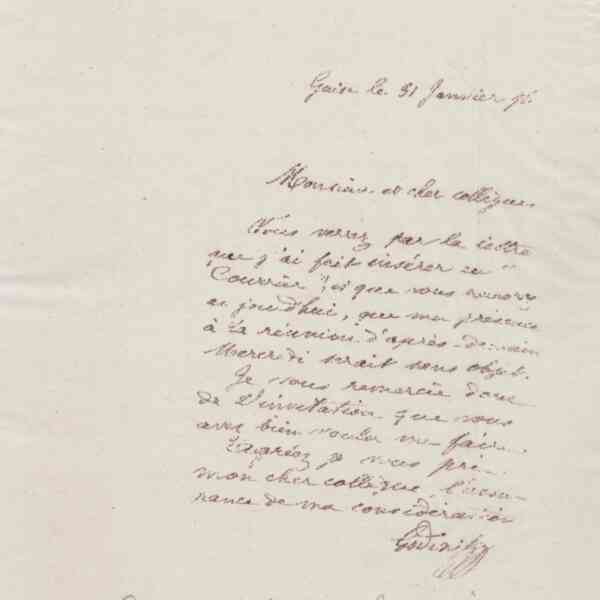 Guise le 31 Janvier 76
Monsieur et cher collègue,
Vous verrez par la lettre
que j'ai fait insérer au "
Courrier", et que vous recevrez
aujourd'hui, que ma présence
à la réunion d'après-demain
Mercredi serait sans objet.
Je vous remercie donc
de l'invitation que vous
avez bien voulu me faire.
Agréez je vous prie
mon cher collègue, l'assu-
rance de ma considération
Godin